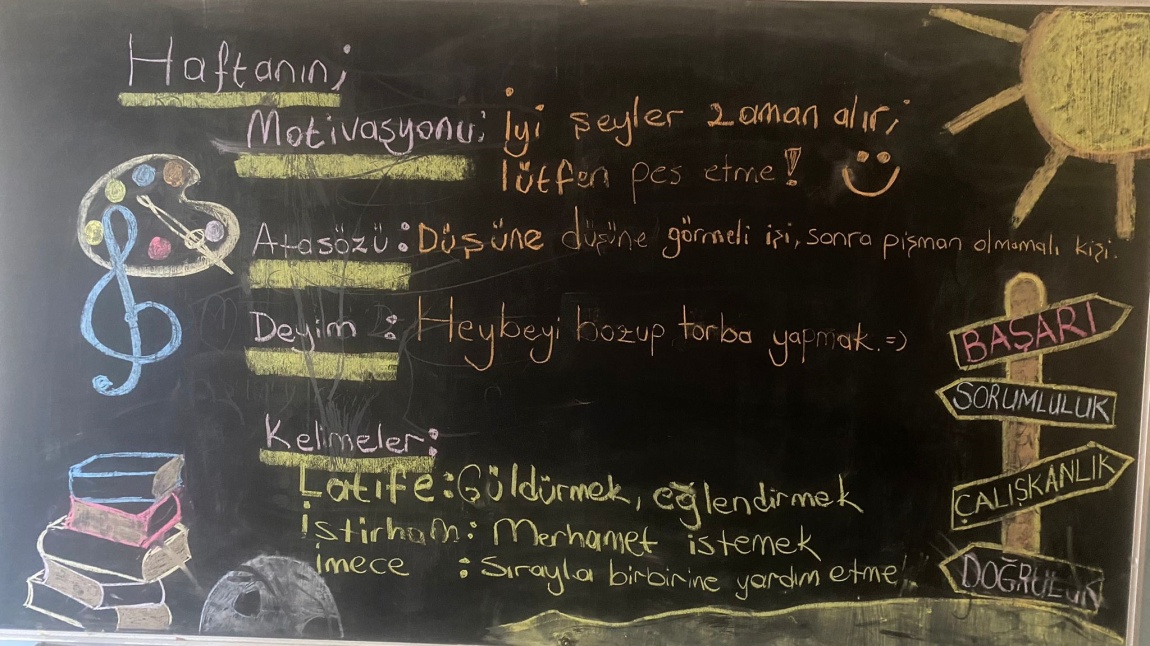 Haftanın;
Motivasyonu: İyi şeyler zaman alır;
lütfen pes etme!
Atasözü: Düşüne düşüne görmeli işi, sonra pişman olmamalı kişi.
Deyim : Heybeyi bozup torba yapmak. =)
Kelimeler:
Latife: Güldürmek, eğlendirmek
İstirham: Merhamet istemek
İmece : Sırayla birbirine yardım etme.
BAŞARI
SORUMLULUK
ÇALIŞKANLIK
DOĞRULUK